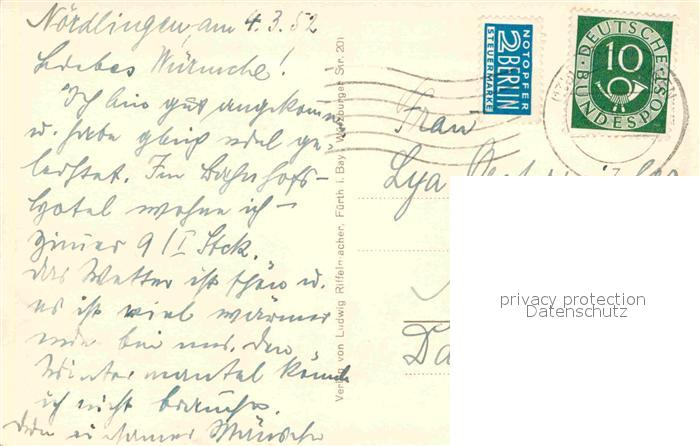 Nördlingen, am 4.3.52
Liebes Würmche!
Ich bin gut angekommen
u. habe gleich viel ge-
leistet. Im Bahnhofs-
hotel wohne ich –
Zimmer 9/I Stck.
das Wetter ist schön u.
es ist viel wärmer
wie bei uns. den
Wintermantel könnte
ich nicht brauchen.
Verlag von Ludwig Riffelmacher, Fürth i. Bay., Würzburger Str. 201
NOTOPFER
2 BERLIN
STEUERMARKE
DEUTSCHE
10
BUNDESPOST
Frau
Lya
privacy protection
Datenschutz